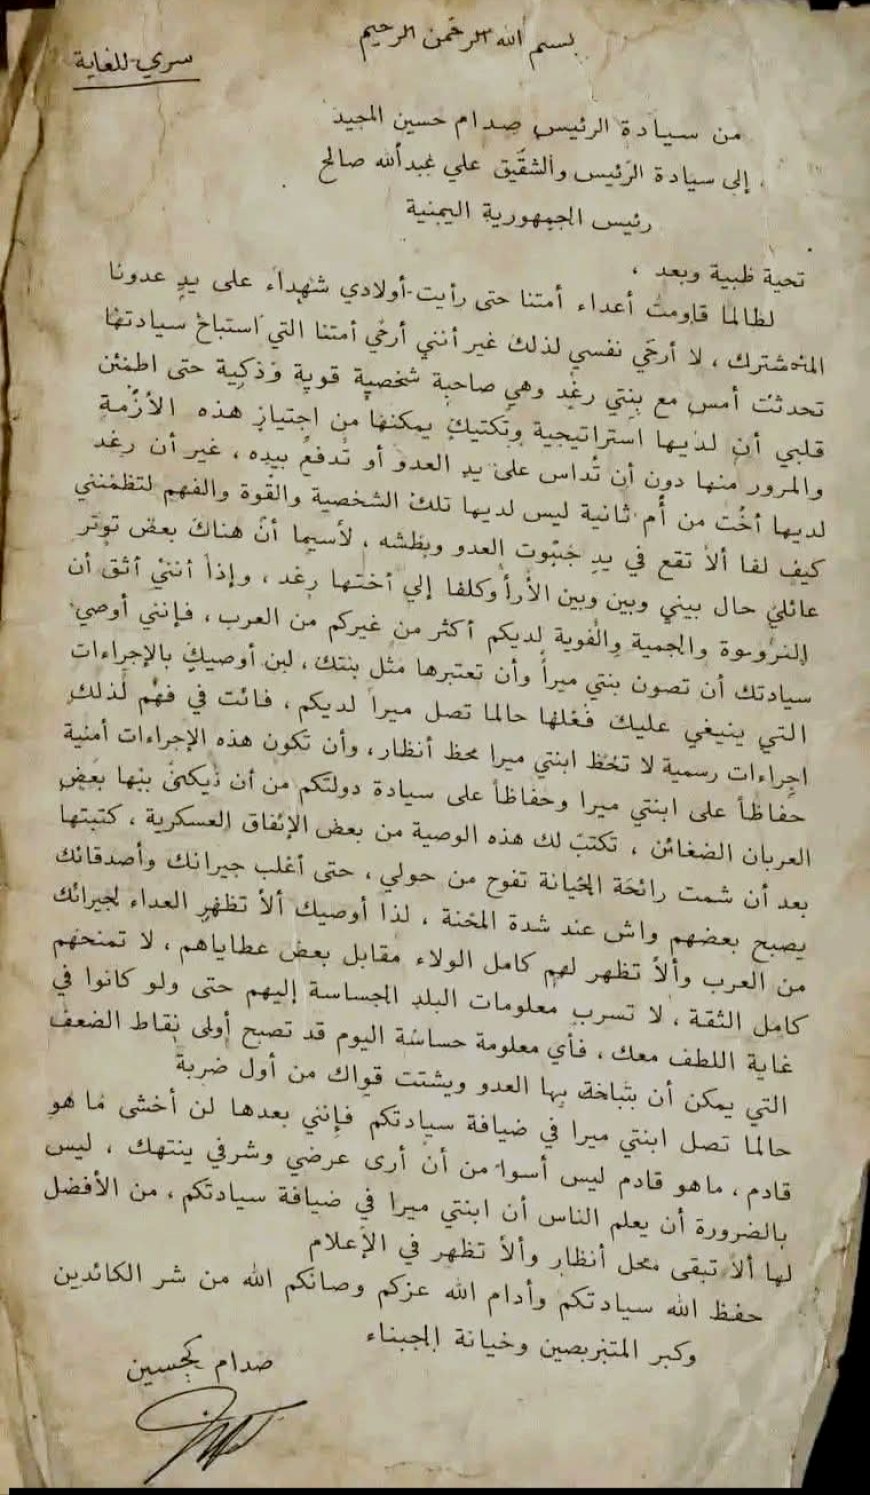 بسم الله الرحمن الرحيم
سري للغاية
من سيادة الرئيس صدام حسين المجيد
إلى سيادة الرئيس والشقيق علي عبدالله صالح
رئيس الجمهورية اليمنية
تحية طيبة وبعد ،
لطالما قاومت أعداء أمتنا حتى رأيت أولادي شهداء على يد عدونا
المشترك ، لا أرخي نفسي لذلك غير أنني أرخي أمتنا التي استباح سيادتها
تحدثت أمس مع بنتي رغد وهي صاحبة شخصية قوية وذكية حتى اطمئن
قلبي أن لديها استراتيجية وتكتيك يمكنها من اجتياز هذه الأزمة
والمرور منها دون أن تداس على يد العدو أو تدفع بيده ، غير أن رغد
لديها أخت من أم ثانية ليس لديها تلك الشخصية والقوة والفهم لتطمئنني
كيف لها ألا تقع في يد العدو وبطشه ، لأسيما أن هناك بعض توتر
عائلي حال بيني وبين وبين إلي أختها رغد ، وإذا أنني أثق أن
لديكم أكثر من غيركم من العرب ، فإنني أوصي
سيادتك أن تصون بنتي ميرا وأن تعتبرها مثل بنتك ، لبن أوصيك بالإجراءات
التي ينبغي عليك فعلها حالما تصل ميرا لديكم ، فائت في فهم لذلك
اجراءات رسمية لا تخظ ابنتي ميرا محظ أنظار ، وأن تكون هذه الإجراءات أمنية
حفاظاً على ابنتي ميرا وحفاظاً على سيادة دولتكم من أن بها بعض
العربان الضغائن ، تكتب لك هذه الوصية من بعض الإنفاق العسكرية ، كتبتها
بعد أن شمت رائحة الخيانة تفوح من حولي ، حتى أغلب جيرانك وأصدقائك
يصبح بعضهم واش عند شدة المحنة ، لذا أوصيك ألا تظهر العداء لجيرانك
من العرب وألا تظهر لهم كامل الولاء مقابل بعض عطاياهم ، لا تمنحهم
كامل الثقة ، لا تسرب معلومات البلد الحساسة إليهم حتى ولو كانوا في
غاية اللطف معك ، فأي معلومة حساسة اليوم قد تصبح أولى نقاط الضعف
التي يمكن أن بها العدو ويشتت قواك من أول ضربة
حالما تصل ابنتي ميرا في ضيافة سيادتكم فإنني بعدها لن أخشى ما هو
قادم ، ماهو قادم ليس أسوا من أن أرى عرضي وشرفي ينتهك ، ليس
بالضرورة أن يعلم الناس أن ابنتي ميرا في ضيافة سيادتكم ، من الأفضل
لها ألا تبقى محل أنظار وألا تظهر في الإعلام
حفظ الله سيادتكم وأدام الله عزكم وصانكم الله من شر الكائدين
وكبر المتربصين وخيانة الجبناء
صدام حسين